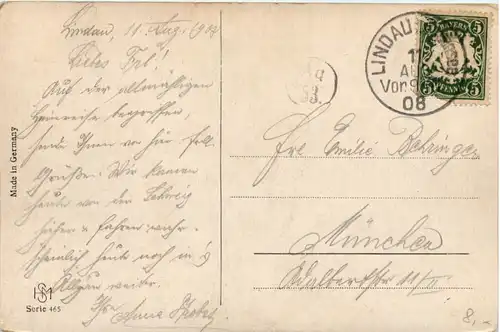 Lindau, 11. Aug. 1908
Liebes Frl!
Auf der allmähligen
Heimreise begriffen,
sende Ihnen von hier frdl.
Grüße. Wir kamen
heute von der Schweiz
hieher & fahren wahr-
scheinlich heute noch in's
Allgäu weiter.
Ihre Anna
Made in Germany
Serie 465
LINDAU
11
AUG
Vor. 9
08
BAYERN
5 5
PFENNIG
Frl Emilie Behringer
München
Adalbertstr 11/II
8,-